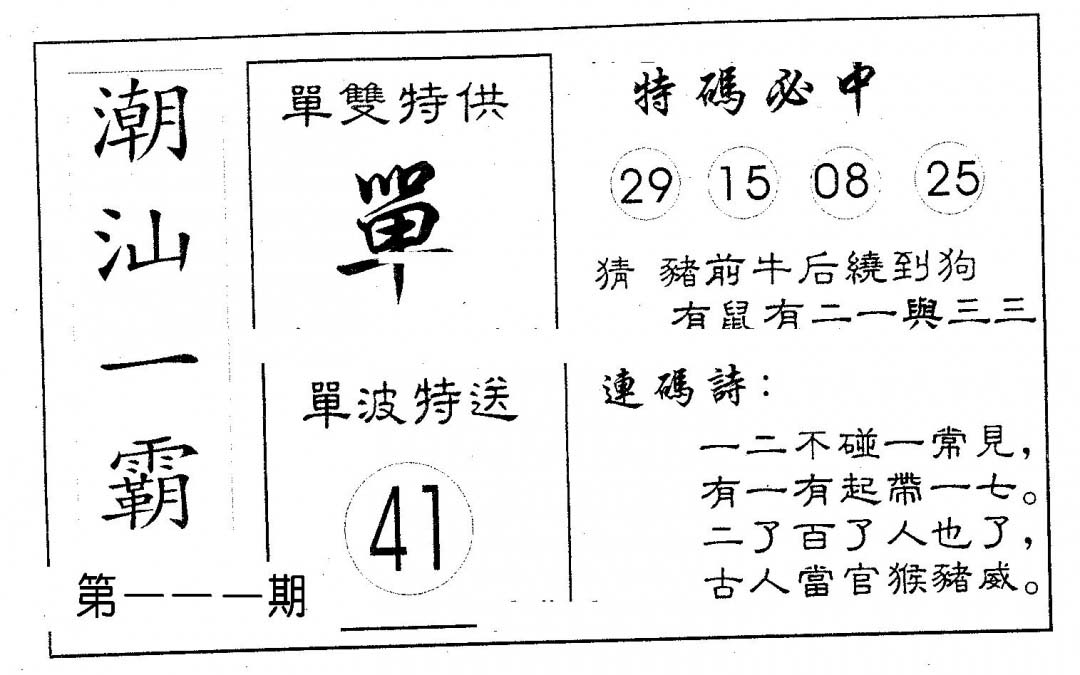 潮汕一霸
第一一一期
單雙特供
單
單波特送
41
特碼必中
29 15 08 25
猜 豬前牛后繞到狗
有鼠有二一與三三
連碼詩：
一二不碰一常見，
有一有起帶一七。
二了百了人也了，
古人當官猴豬威。